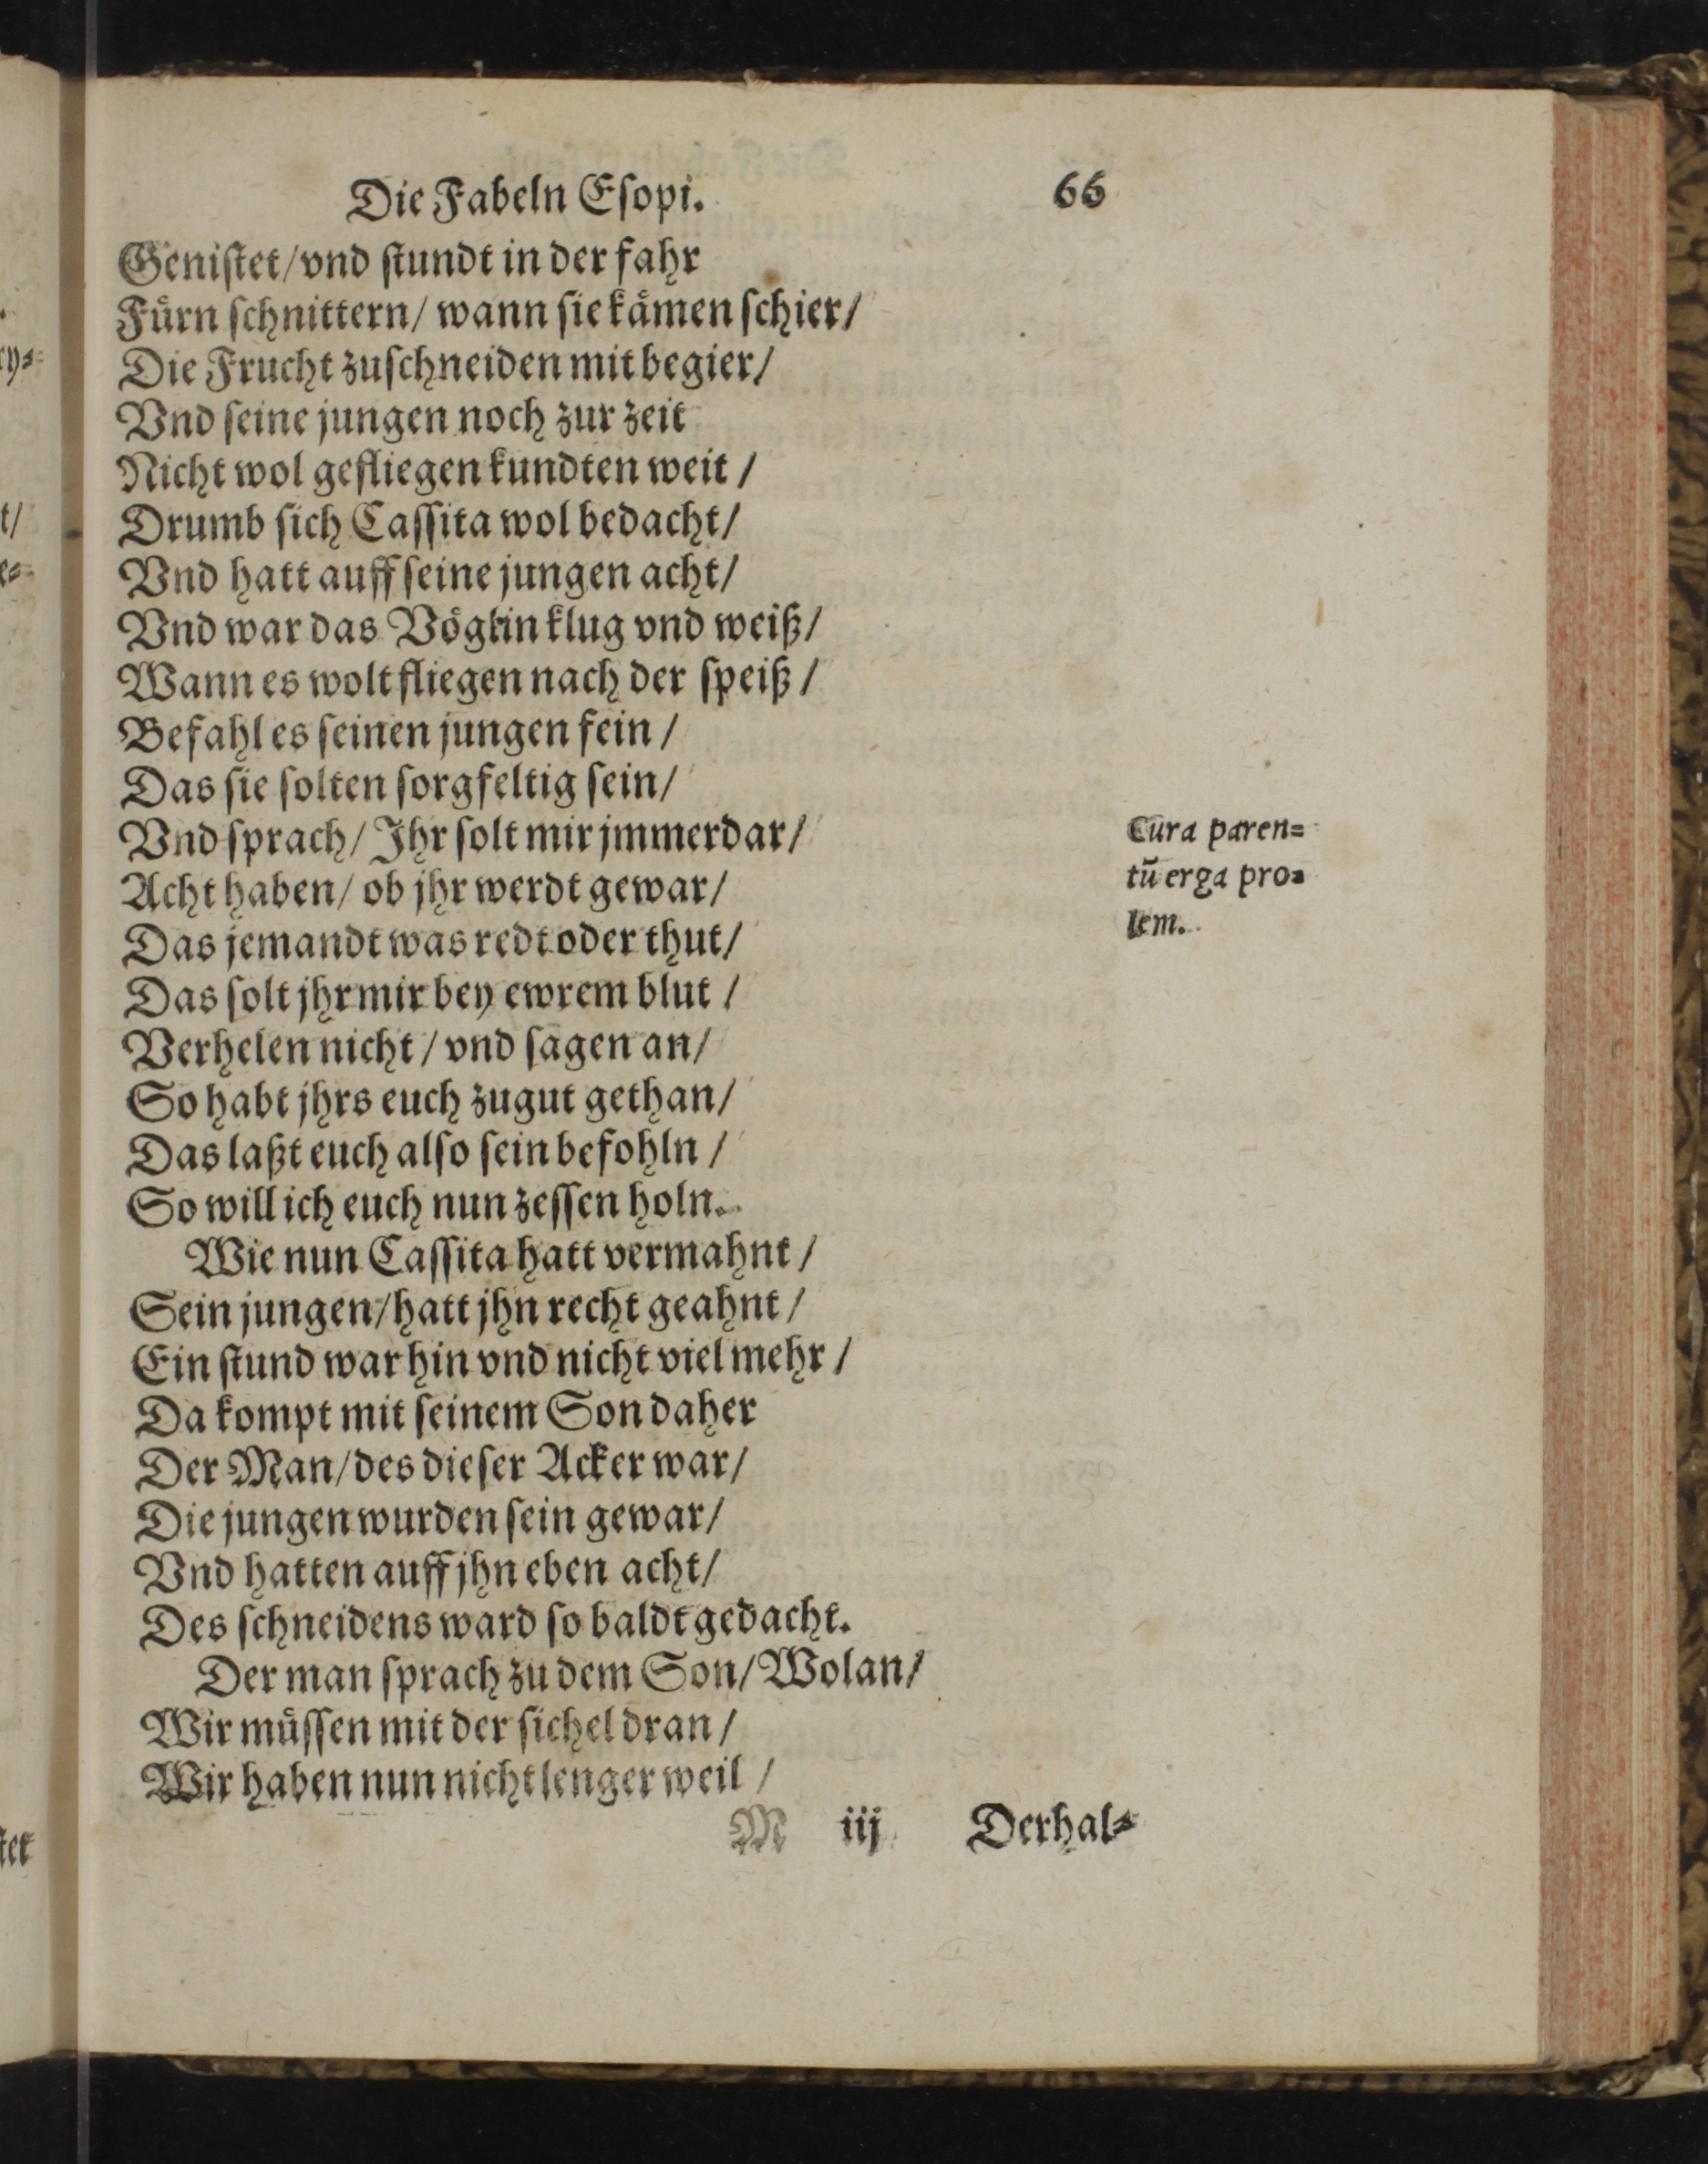 Die Fabeln Eſopi. 66
Geniſtet/vnd ſtundt in der fahr
Fuͤrn ſchnittern/ wann ſie kaͤmen ſchier/
Die Frucht zuſchneiden mit begier/
Vnd ſeine jungen noch zur zeit
Nicht wol gefliegen kundten weit /
Drumb ſich Caſſita wol bedacht/
Vnd hatt auff ſeine jungen acht/
Vnd war das Voͤglin klug vnd weiß/
Wann es wolt fliegen nach der ſpeiß /
Befahl es ſeinen jungen fein /
Das ſie ſolten ſorgfeltig ſein/
Vnd ſprach/ Ihr ſolt mir jmmerdar/
Acht haben/ ob jhr werdt gewar/
Das jemandt was redt oder thut/
Das ſolt jhr mir bey ewrem blut /
Verhelen nicht / vnd ſagen an/
So habt jhrs euch zugut gethan/
Das laßt euch alſo ſein befohln /
So will ich euch nun zeſſen holn.
Wie nun Caſſita hatt vermahnt /
Sein jungen/hatt jhn recht geahnt /
Ein ſtund war hin vnd nicht viel mehr /
Da kompt mit ſeinem Son daher
Der Man/des dieſer Acker war/
Die jungen wurden ſein gewar/
Vnd hatten auff jhn eben acht/
Des ſchneidens ward ſo baldt gedacht.
Der man ſprach zu dem Son/Wolan/
Wir muͤſſen mit der ſichel dran /
Wir haben nun nicht lenger weil /
M iij Derhal⸗
Cura paren=
tū erga pro=
lem.